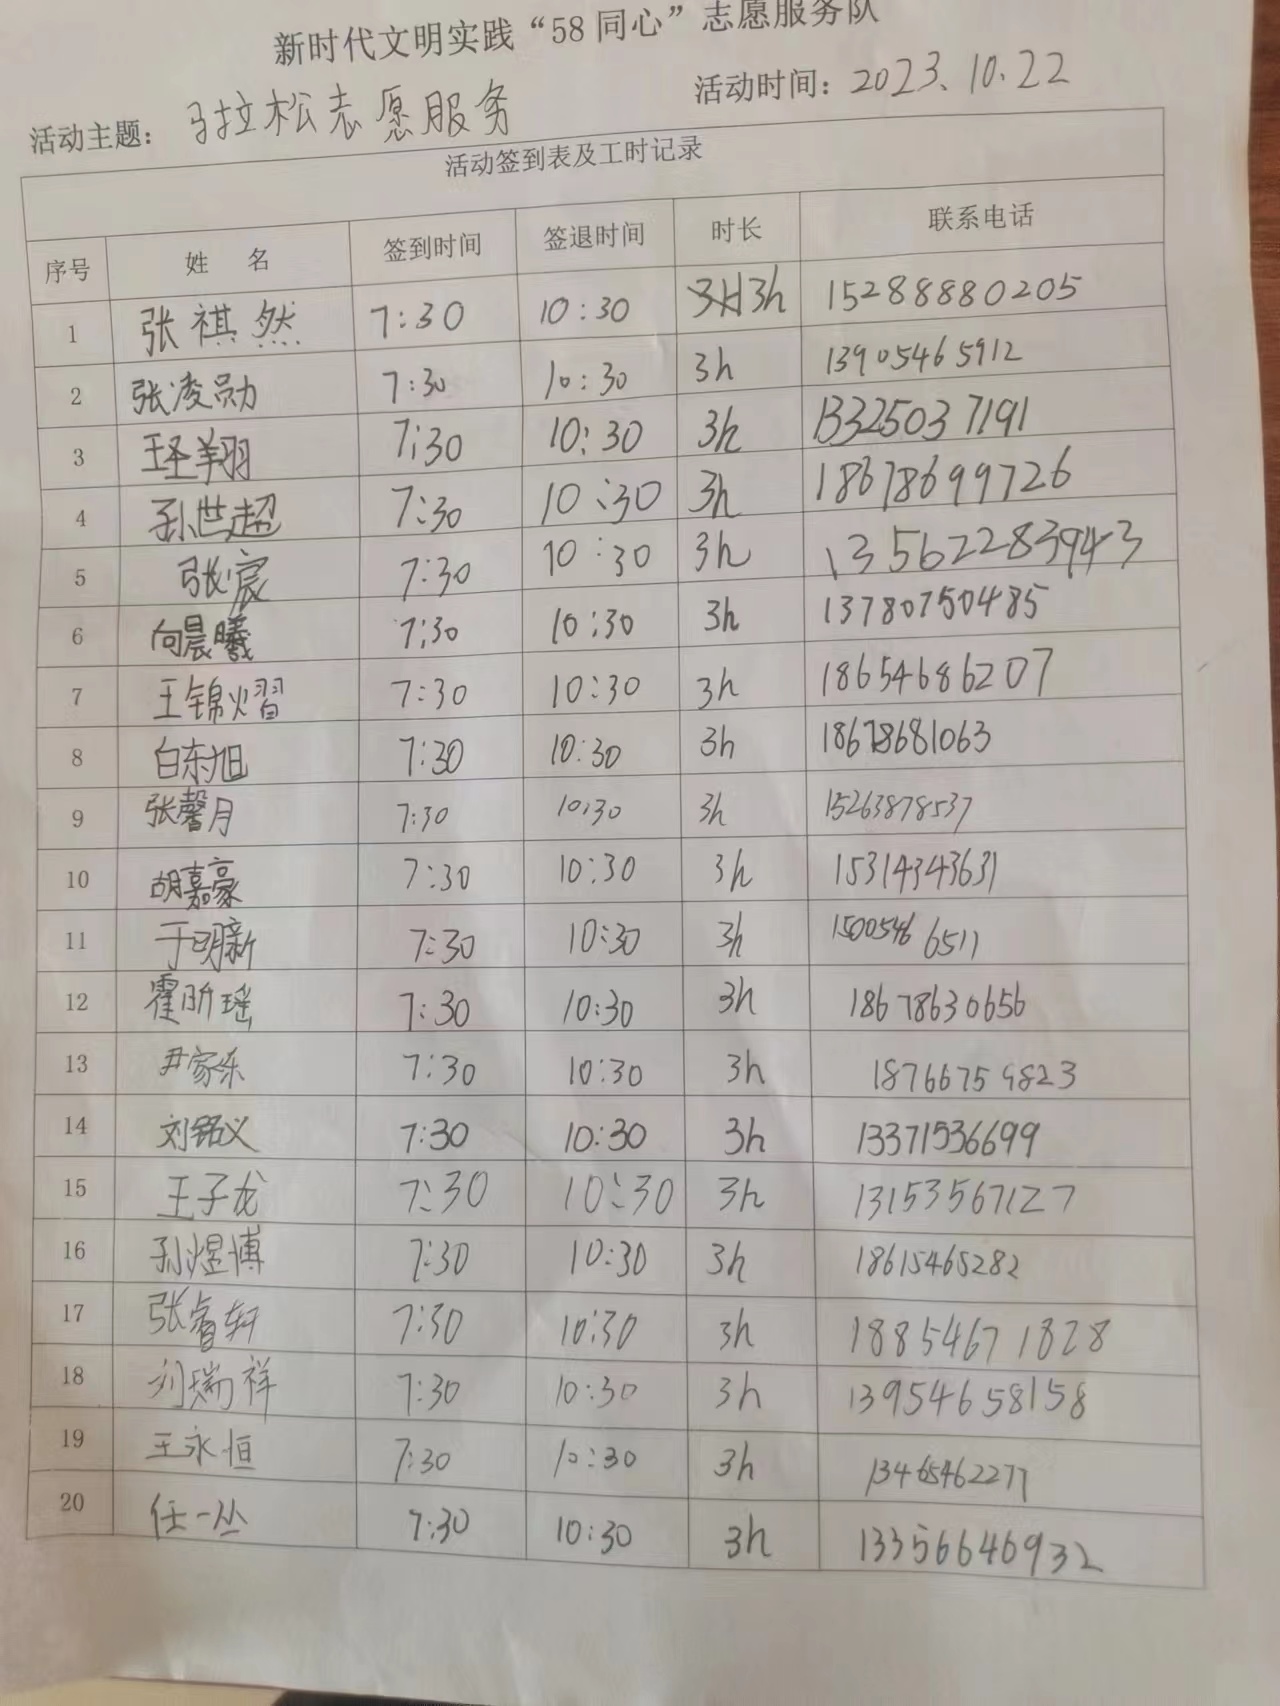 新时代文明实践“58同心”志愿服务队
活动主题： 马拉松志愿服务 活动时间：2023.10.22
活动签到表及工时记录
序号 姓 名 签到时间 签退时间 时长 联系电话
1 张祺然 7:30 10:30 3h 15288880205
2 张凌勋 7:30 10:30 3h 13905465912
3 王圣翔 7:30 10:30 3h 13325037191
4 孙世超 7:30 10:30 3h 18678699726
5 张宸 7:30 10:30 3h 13562283943
6 向晨曦 7:30 10:30 3h 13780750485
7 王锦熠 7:30 10:30 3h 18654686207
8 白东旭 7:30 10:30 3h 18678681063
9 张馨月 7:30 10:30 3h 15263878537
10 胡嘉豪 7:30 10:30 3h 15314343631
11 于明新 7:30 10:30 3h 15005466511
12 霍昕瑶 7:30 10:30 3h 18678630656
13 尹家乐 7:30 10:30 3h 18766759823
14 刘铭义 7:30 10:30 3h 13371536699
15 王子龙 7:30 10:30 3h 13153567127
16 孙煜博 7:30 10:30 3h 18615465282
17 张睿轩 7:30 10:30 3h 18854671828
18 刘瑞祥 7:30 10:30 3h 13954658158
19 王永恒 7:30 10:30 3h 13465462277
20 任一丛 7:30 10:30 3h 13356646932